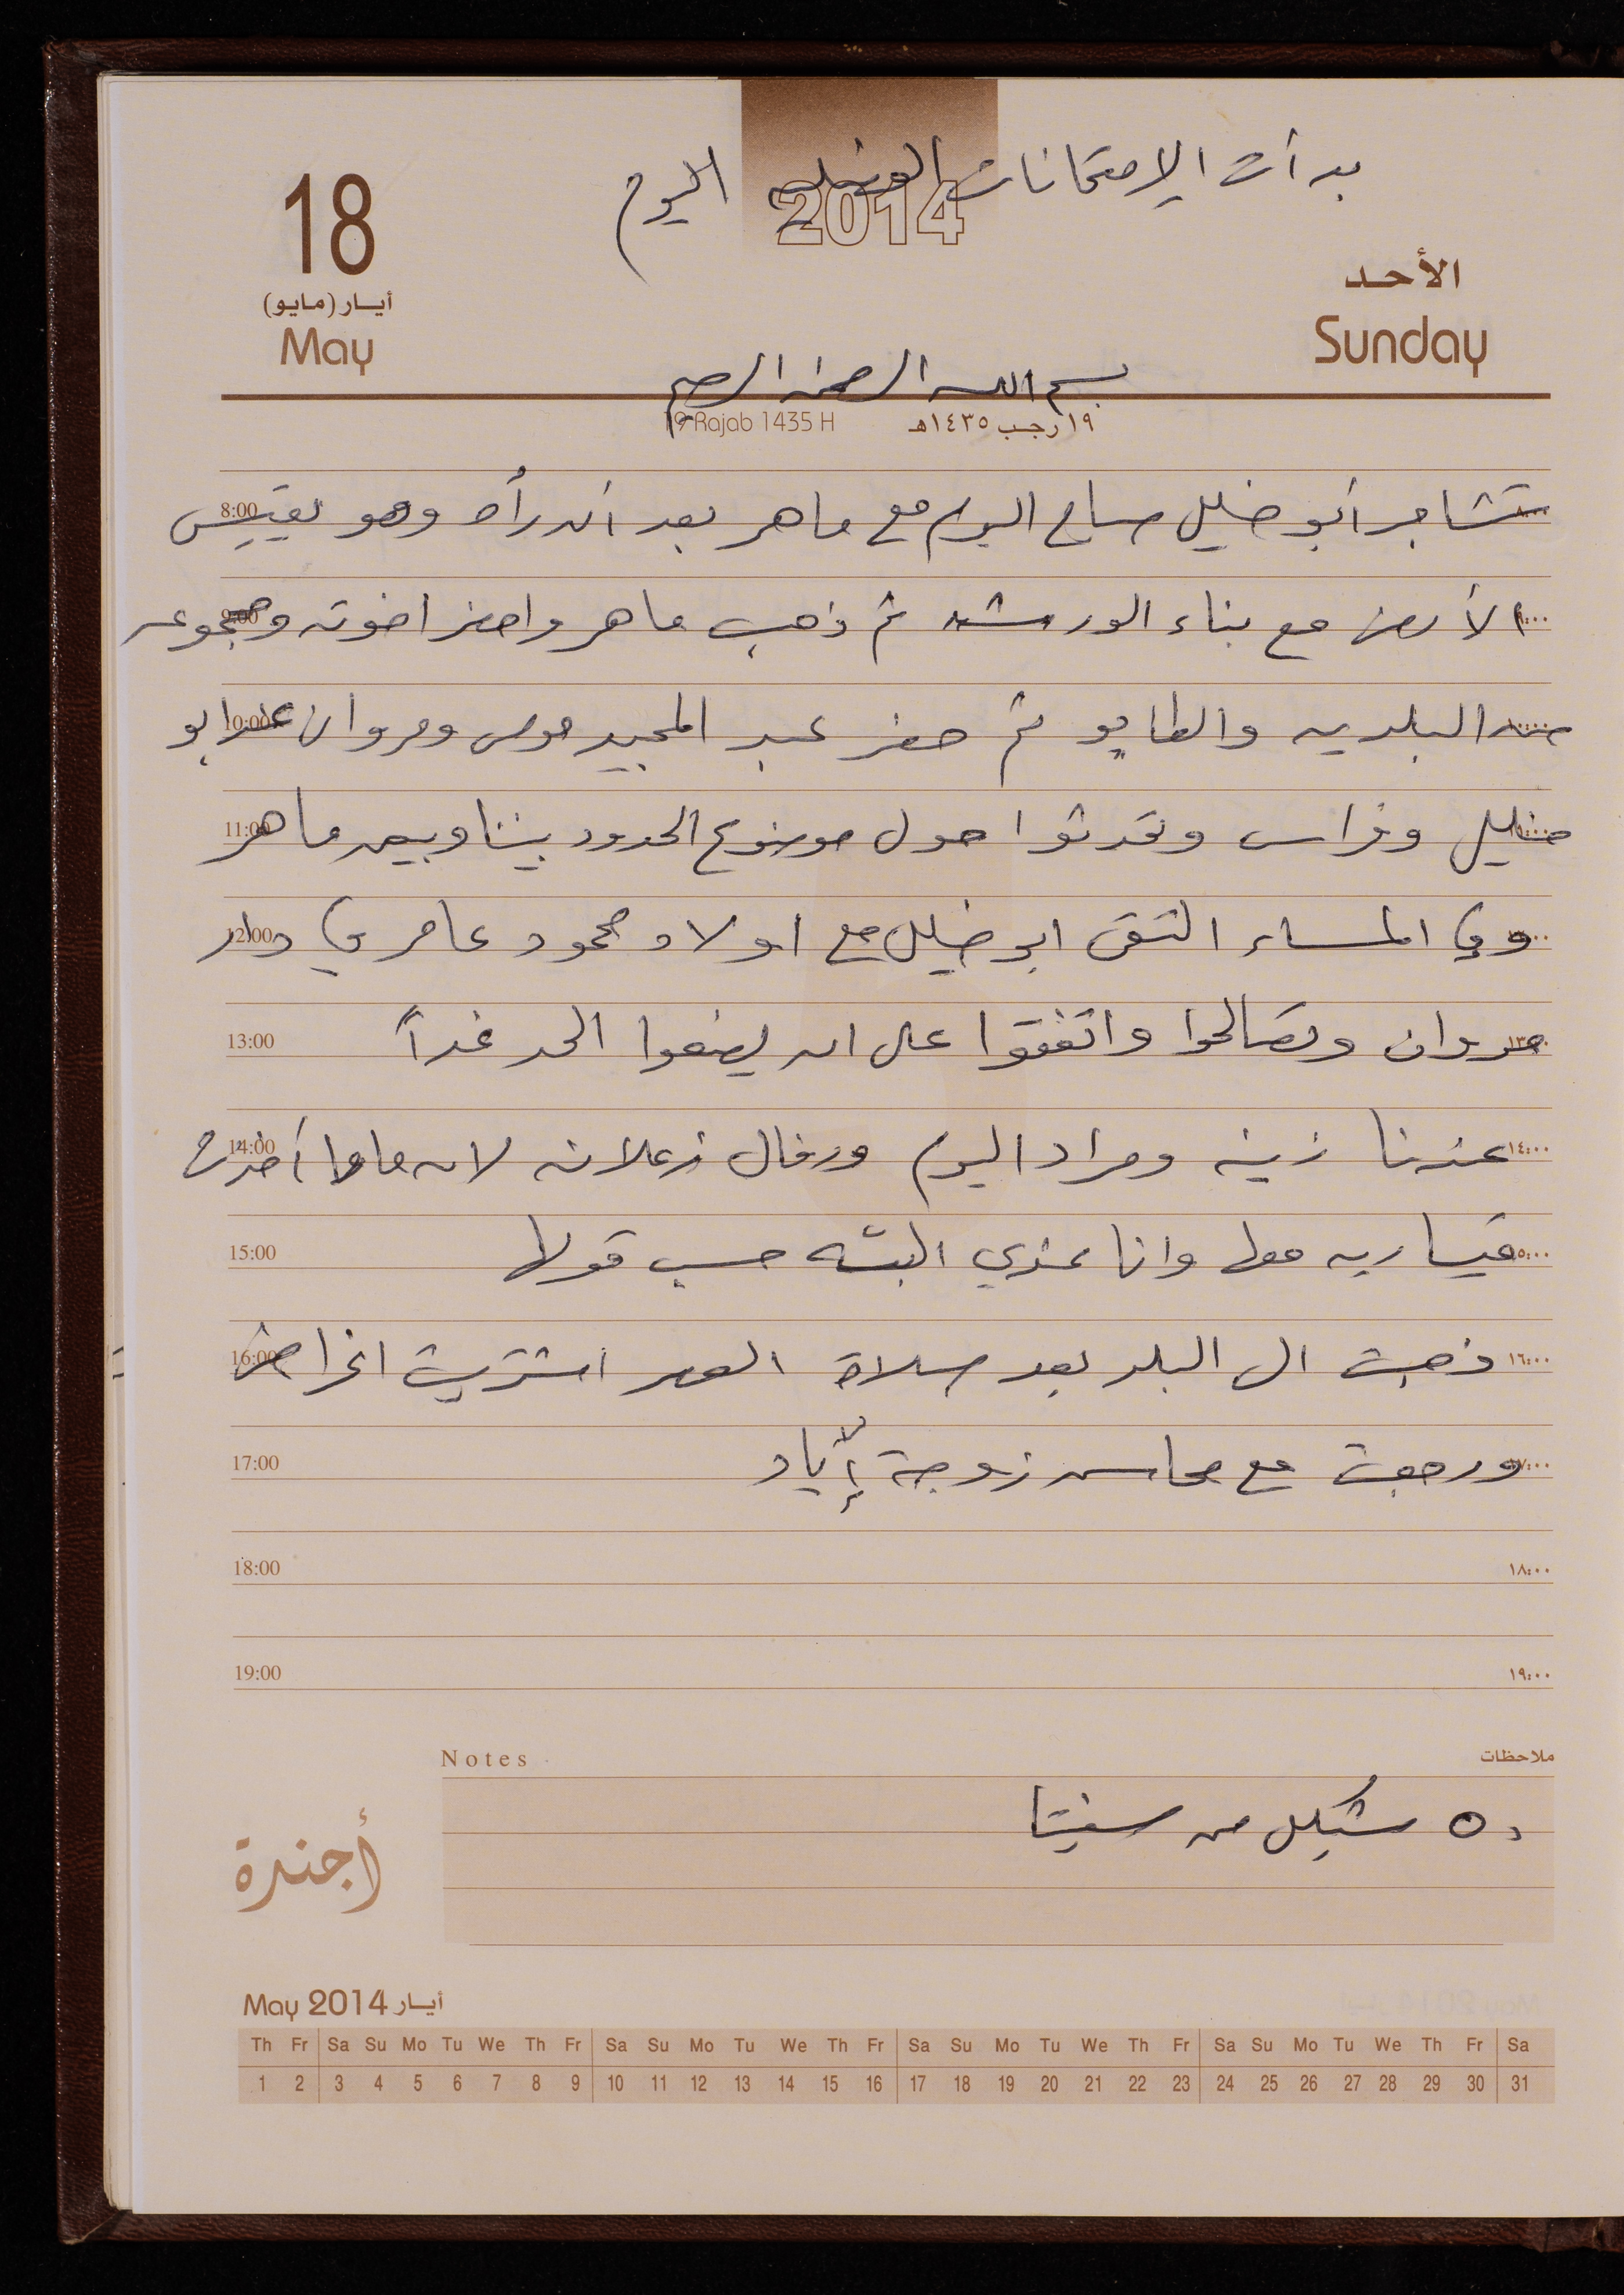 بدأت الإمتحانات الفصليه اليوم
2014
18
أيار (مايو)
May
الأحد
Sunday
بسم الله الرحمن الرحيم
19 Rajab 1435 H
١٩ رجب ١٤٣٥هـ
8:00 تشاجر أبو خليل صباح اليوم مع ماهر بعد أن رأه وهو يقيس
9:00 الأرض مع بناء الورشه ثم ذهب ماهر واحضر اخوته ومجموعه
10:00 من البلديه والطابو ثم حضر عبد المجيد موسى ومروان عند ابو
11:00 خليل وفراس وتحدثوا حول موضوع الحدود بيننا وبين ماهر
12:00 وفي المساء التقى ابو خليل مع اولاد محمود عامر في دار
13:00 مروان وتصالحوا واتفقوا على ان يضعوا الحد غداً ١٣:٠٠
14:00 عندنا زينه ومراد اليوم ورفال زعلانه لان ماما أخذت ١٤:٠٠
15:00 قيساريه معها وانا عندي البشه حسب قولها ١٥:٠٠
16:00 ذهبت الى البلد بعد صلاة العصر اشتريت اغراض ١٦:٠٠
17:00 ورجعت مع محاسن زوجة إياد ١٧:٠٠
18:00 ١٨:٠٠
19:00 ١٩:٠٠
Notes ملاحظات
٥٠ شيكل من سفيتا
أجندة
May 2014 أيار
Th Fr Sa Su Mo Tu We Th Fr Sa Su Mo Tu We Th Fr Sa Su Mo Tu We Th Fr Sa Su Mo Tu We Th Fr Sa
1 2 3 4 5 6 7 8 9 10 11 12 13 14 15 16 17 18 19 20 21 22 23 24 25 26 27 28 29 30 31